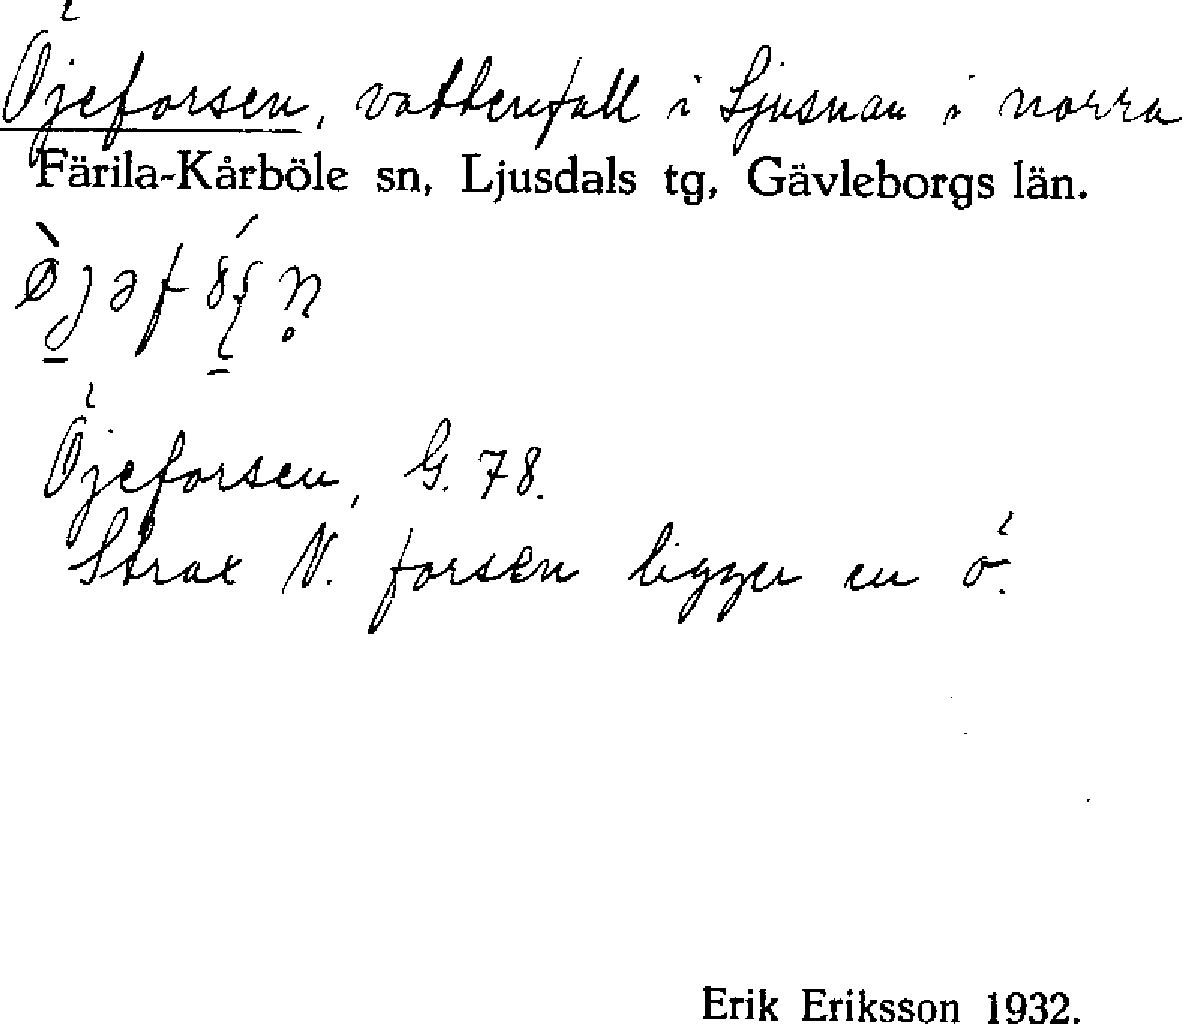 Öjeforsen, vattenfall i Ljusnan i norra
Färila-Kårböle sn, Ljusdals tg, Gävleborgs län.
Öjeforsen, G. 78.
Strax N. forsen ligger en ö.
Erik Eriksson 1932.